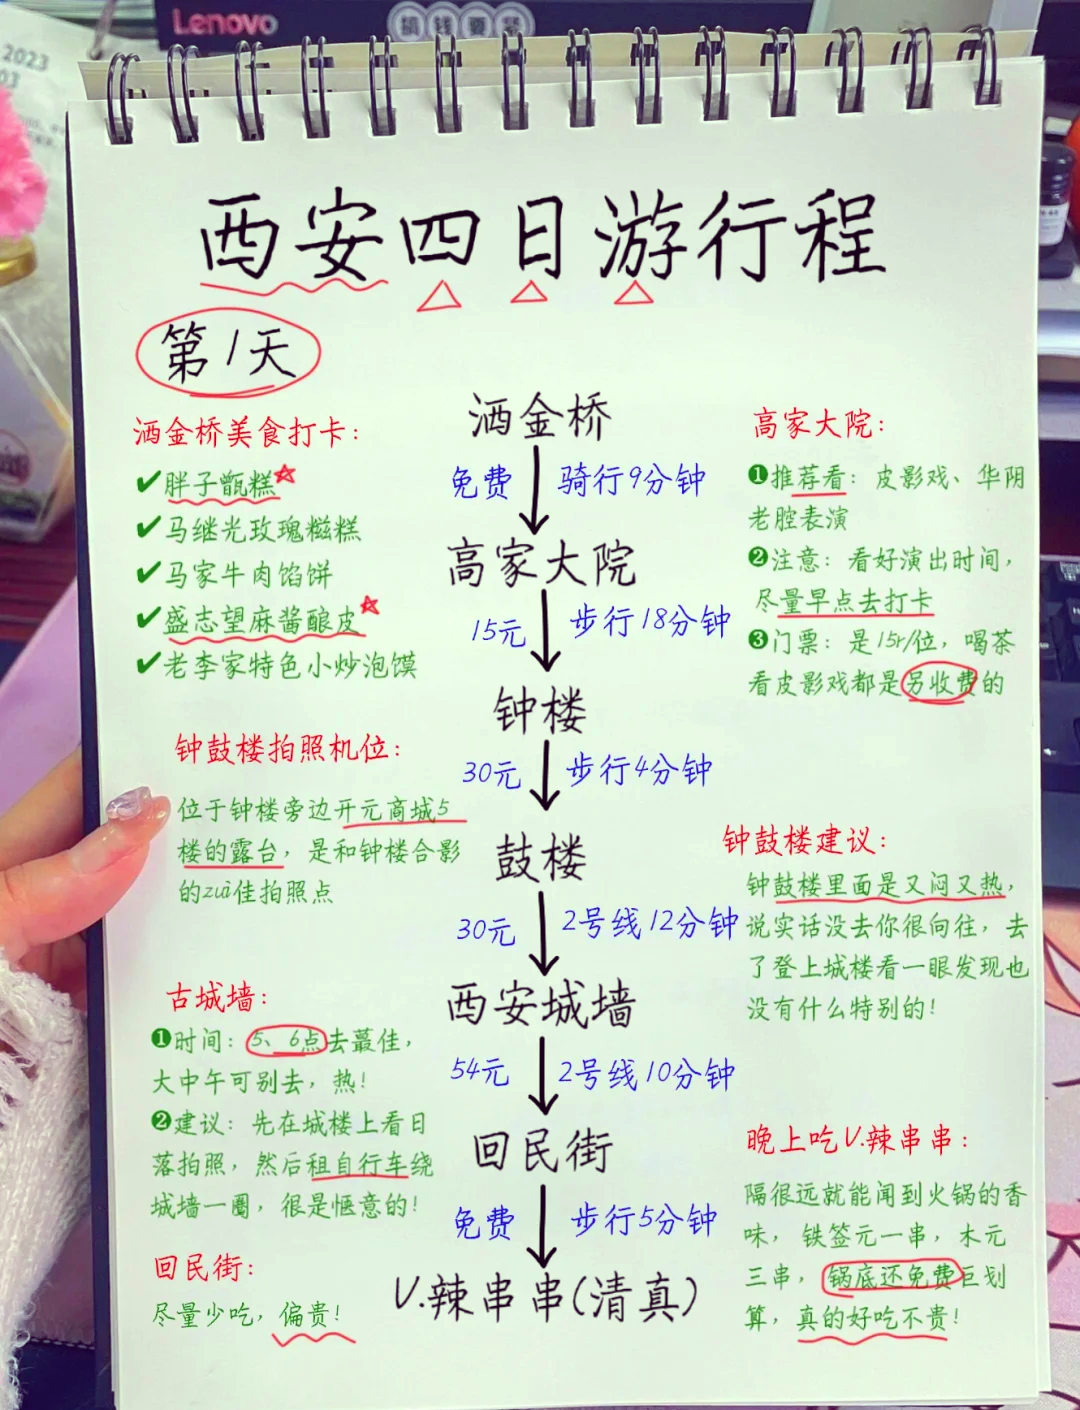 Lenovo
搞钱要紧
2023
03
西安四日游行程
第1天
洒金桥美食打卡：
✔胖子甑糕
✔马继光玫瑰糍糕
✔马家牛肉馅饼
✔盛志望麻酱酿皮
✔老李家特色小炒泡馍
钟鼓楼拍照机位：
位于钟楼旁边开元商城5
楼的露台，是和钟楼合影
的zuì佳拍照点
古城墙：
❶时间：5、6点去蕞佳，
大中午可别去，热！
❷建议：先在城楼上看日
落拍照，然后租自行车绕
城墙一圈，很是惬意的！
回民街：
尽量少吃，偏贵！
洒金桥
免费 骑行9分钟
高家大院
15元 步行18分钟
钟楼
30元 步行4分钟
鼓楼
30元 2号线12分钟
西安城墙
54元 2号线10分钟
回民街
免费 步行5分钟
V.辣串串(清真)
高家大院：
❶推荐看：皮影戏、华阴
老腔表演
❷注意：看好演出时间，
尽量早点去打卡
❸门票：是15r/位，喝茶
看皮影戏都是另收费的
钟鼓楼建议：
钟鼓楼里面是又闷又热，
说实话没去你很向往，去
了登上城楼看一眼发现也
没有什么特别的！
晚上吃V.辣串串：
隔很远就能闻到火锅的香
味，铁签元一串，木元
三串，锅底还免费巨划
算，真的好吃不贵！